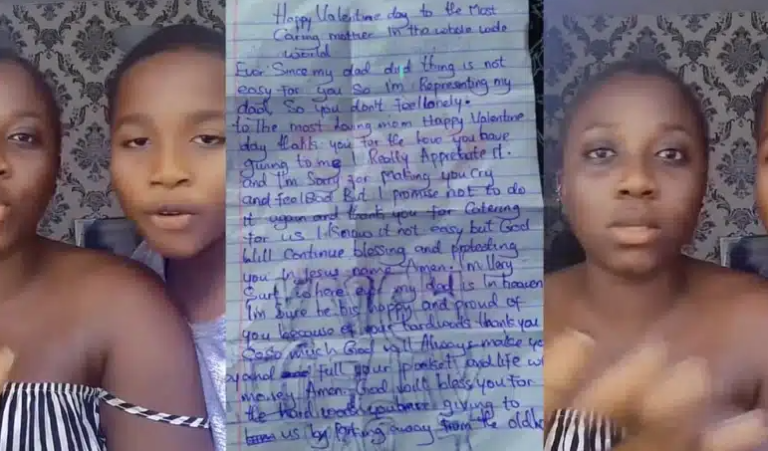 Happy Valentine day to the Most
Caring mother in the whole wide
world
Ever Since my dad died thing is not
easy for you So i'm Representing my
dad, So you don't feel lonely.
to the most loving mom Happy Valentine
day thank you for the love you have
giving to me I Really Appreciate it.
and I'm Sorry for making you Cry
and feel Bad But I promise not to do
it again and thank you for Catering
for us I know it not easy but God
Will continue blessing and protesting
you in Jesus name Amen. I'm Very
Sure where my dad is In heaven
I'm Sure he his happy and proud of
you because of your hardwork thank you
so much God will Always make
and full your pocket and life
money Amen. God will bless you for
the hard giving to
us by away from the